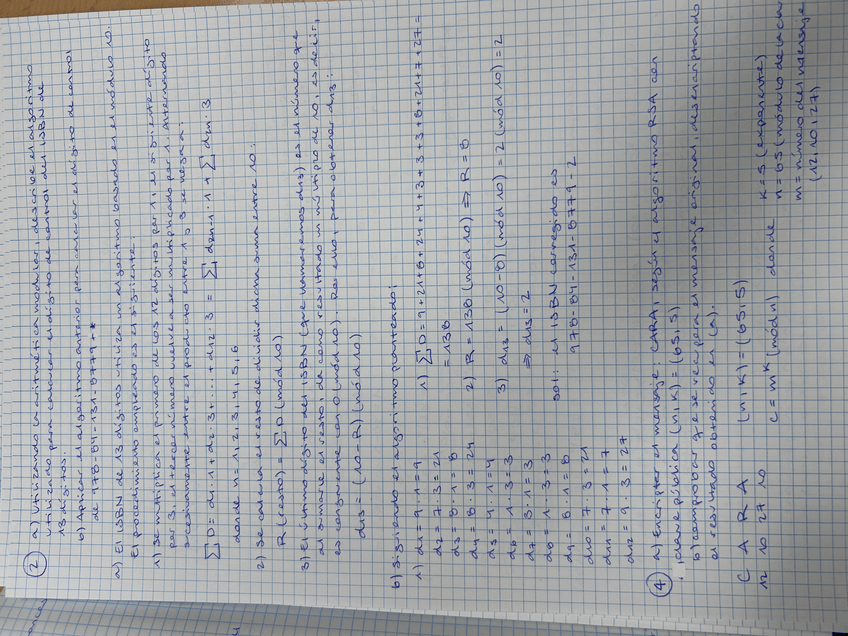 2 a) Utilizando la aritmética modular, describe el algoritmo
utilizado para calcular el dígito de control del ISBN de
13 dígitos.
b) Aplicar el algoritmo anterior para calcular el dígito de control
de 978-84-131-8779-*
a) El ISBN de 13 dígitos utiliza un algoritmo basado en el módulo 10.
El procedimiento empleado es el siguiente:
1) Se multiplica el primero de los 12 dígitos por 1, el siguiente dígito
por 3, el tercer número vuelve a ser multiplicado por 1, alternando
sucesivamente entre el producto entre 1 o 3 se llega a:
∑D = d1·1 + d2·3 + ... + d12·3 = ∑ d2n-1·1 + ∑ d2n·3
donde n = 1, 2, 3, 4, 5, 6
2) Se calcula el resto de dividir dicha suma entre 10.
R (resto) = ∑D (mód 10)
3) El último dígito del ISBN (que llamaremos d13) es el número que
al sumarle el resto, da como resultado un múltiplo de 10, es decir,
es congruente con 0 (mód 10). Por ello, para obtener d13:
d13 = (10-R) (mód 10)
b) Siguiendo el algoritmo planteado:
1) d1 = 9·1 = 9
d2 = 7·3 = 21
d3 = 8·1 = 8
d4 = 8·3 = 24
d5 = 4·1 = 4
d6 = 1·3 = 3
d7 = 3·1 = 3
d8 = 1·3 = 3
d9 = 8·1 = 8
d10 = 7·3 = 21
d11 = 7·1 = 7
d12 = 9·3 = 27
1) ∑D = 9+21+8+24+4+3+3+3+8+21+7+27 =
= 138
2) R = 138 (mód 10) ⇒ R = 8
3) d13 = (10-8) (mód 10) = 2 (mód 10) = 2
⇒ d13 = 2
Sol: el ISBN corregido es
978-84-131-8779-2
4 a) Encriptar el mensaje: CARA, según el algoritmo RSA con
clave pública (n,k) = (65,5)
b) Comprobar que se recupera el mensaje original, desencriptando
el resultado obtenido en (a).
C A R A (n,k) = (65,5)
12 10 27 10 c = m^k (mód n) donde
k = 5 (exponente)
n = 65 (módulo de la
m = número del mensaje
(12, 10, 27)